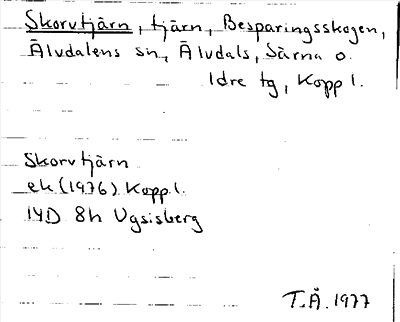 Skorvtjärn, tjärn, Besparingsskogen,
Älvdalens sn, Älvdals, Särna o.
Idre tg, Kopp l.
Skorvtjärn
ek (1976) Kopp l.
14D 8h Ugsisberg
T.Å. 1977